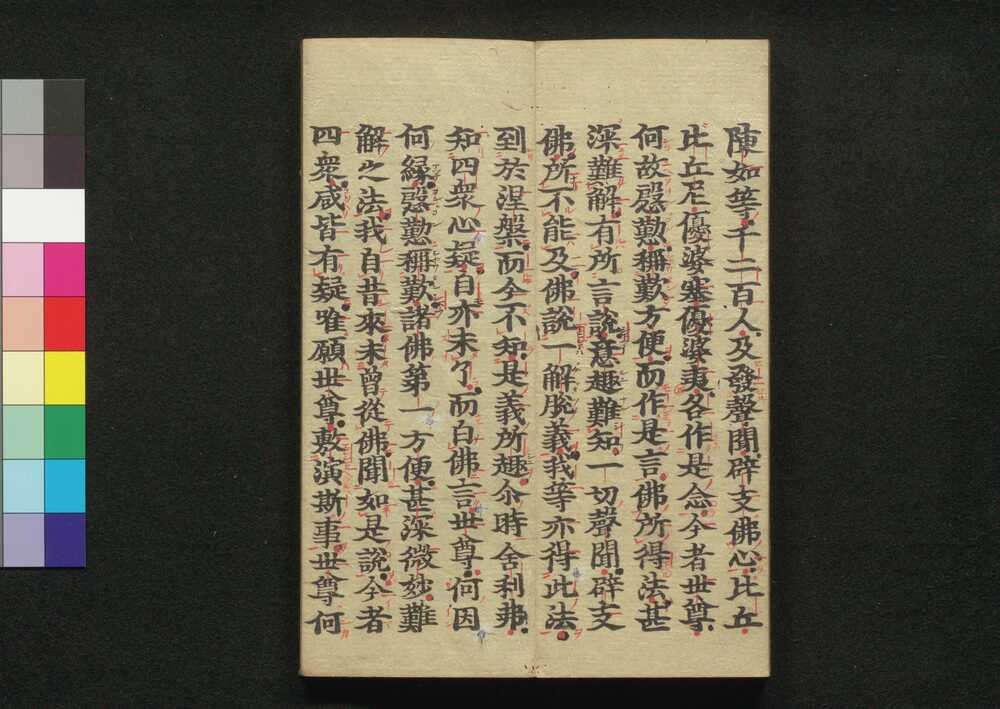 陳如等千二百人及發聲聞辟支佛心比丘
比丘尼優婆塞優婆夷各作是念今者世尊
何故慇懃稱歎方便而作是言佛所得法甚
深難解有所言說意趣難知一切聲聞辟支
佛所不能及佛說一解脫義我等亦得此法
到於涅槃而今不知是義所趣尒時舍利弗
知四衆心疑自亦未了而白佛言世尊何因
何緣慇懃稱歎諸佛第一方便甚深微妙難
解之法我自昔來未曾從佛聞如是說今者
四衆咸皆有疑唯願世尊敷演斯事世尊何